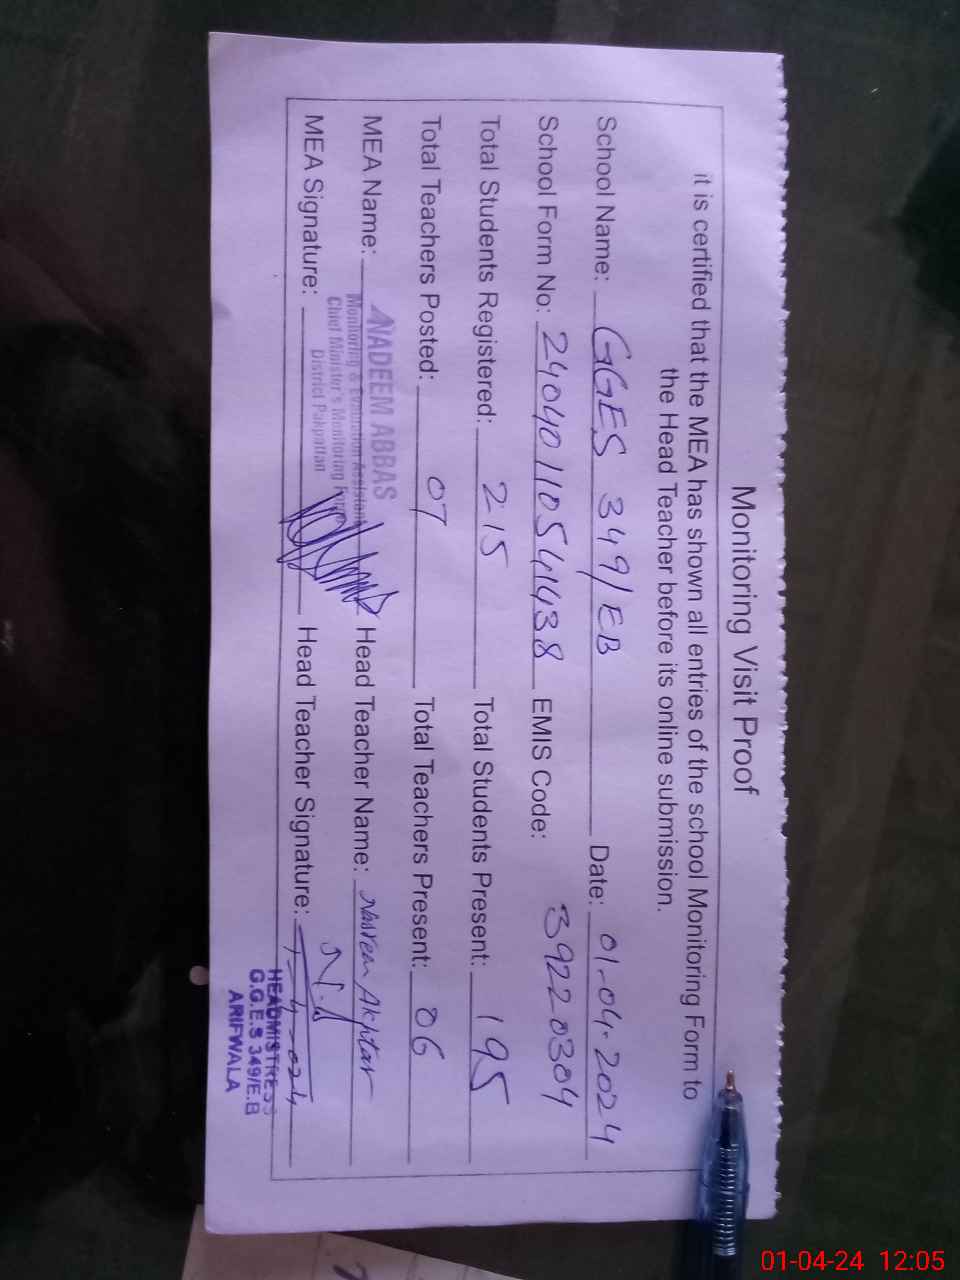 Monitoring Visit Proof
it is certified that the MEA has shown all entries of the school Monitoring Form to
the Head Teacher before its online submission.
School Name: GGES 349/EB Date: 01-04-2024
School Form No: 240401105441438 EMIS Code: 39220304
Total Students Registered: 215 Total Students Present: 195
Total Teachers Posted: 07 Total Teachers Present: 06
MEA Name: NADEEM ABBAS Head Teacher Name: Nasreen Akhtar
Monitoring & Evaluation Assistant
Chief Minister's Monitoring Force
District Pakpattan
MEA Signature: Head Teacher Signature:
HEADMISTRESS
G.G.E.S 349/E.B
ARIFWALA
01-04-24 12:05